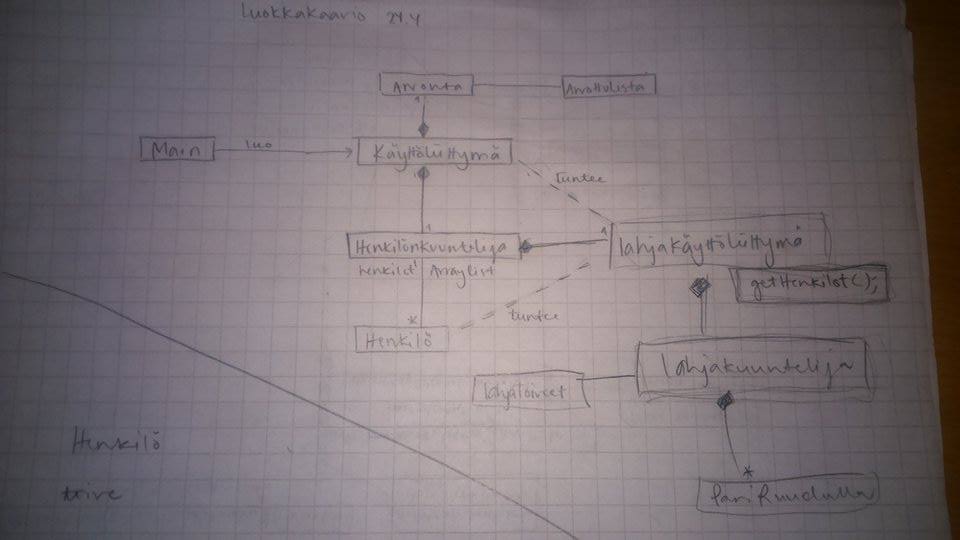 Luokkakaavio 24.4
Arvonta
Arvottulista
1
Main
luo
Käyttöliittymä
1
tuntee
1
1
Henkilönkuuntelija
LahjaKäyttöliittymä
henkilöt Arraylist
getHenkilot();
*
tuntee
Henkilö
Lahjakuuntelija
lahjatoiveet
Henkilö
*
PariRuudulla